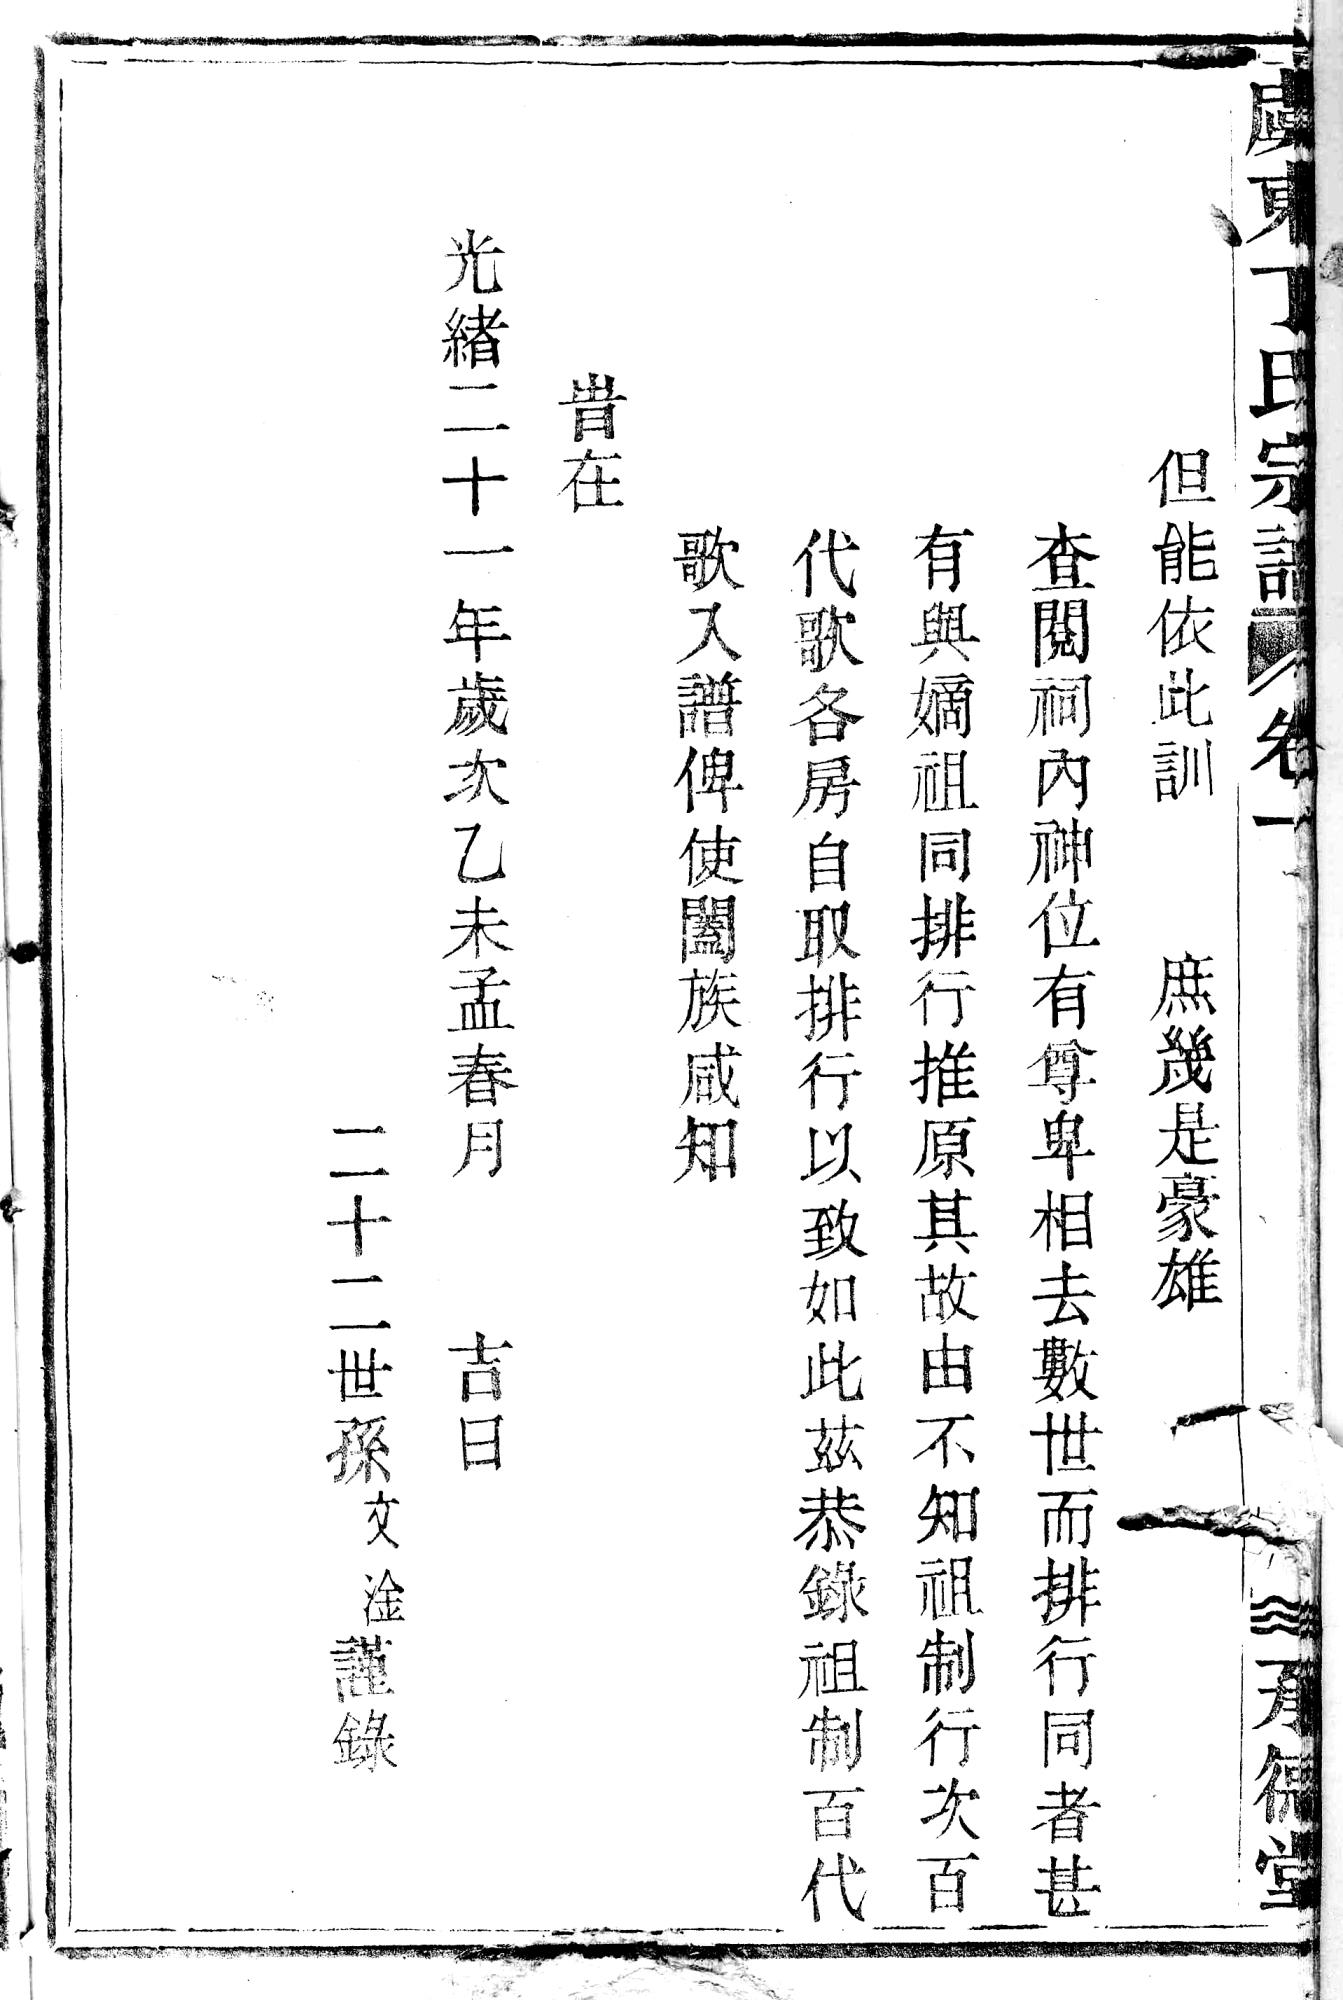 廣東丁氏宗譜 卷一 承德堂
但能依此訓 庶幾是豪雄
查閱祠內神位有尊卑相去數世而排行同者甚
有與嫡祖同排行推原其故由不知祖制行次百
代歌各房自取排行以致如此茲恭錄祖制百代
歌入譜俾使闔族咸知
旹在
光緒二十一年歲次乙未孟春月 吉日
二十二世孫文淦謹錄